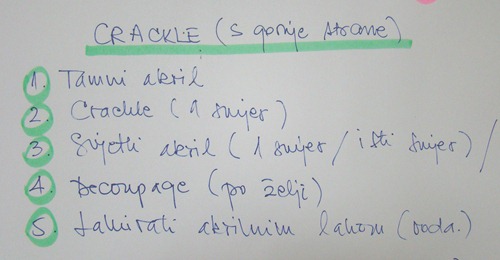 CRACKLE (s gornje strane)
1. Tamni akril
2. Crackle (1 smjer)
3. Svjetli akril (1 smjer / isti smjer) /
4. Decoupage (po želji)
5. Lakirati akrilnim lakom (voda.)